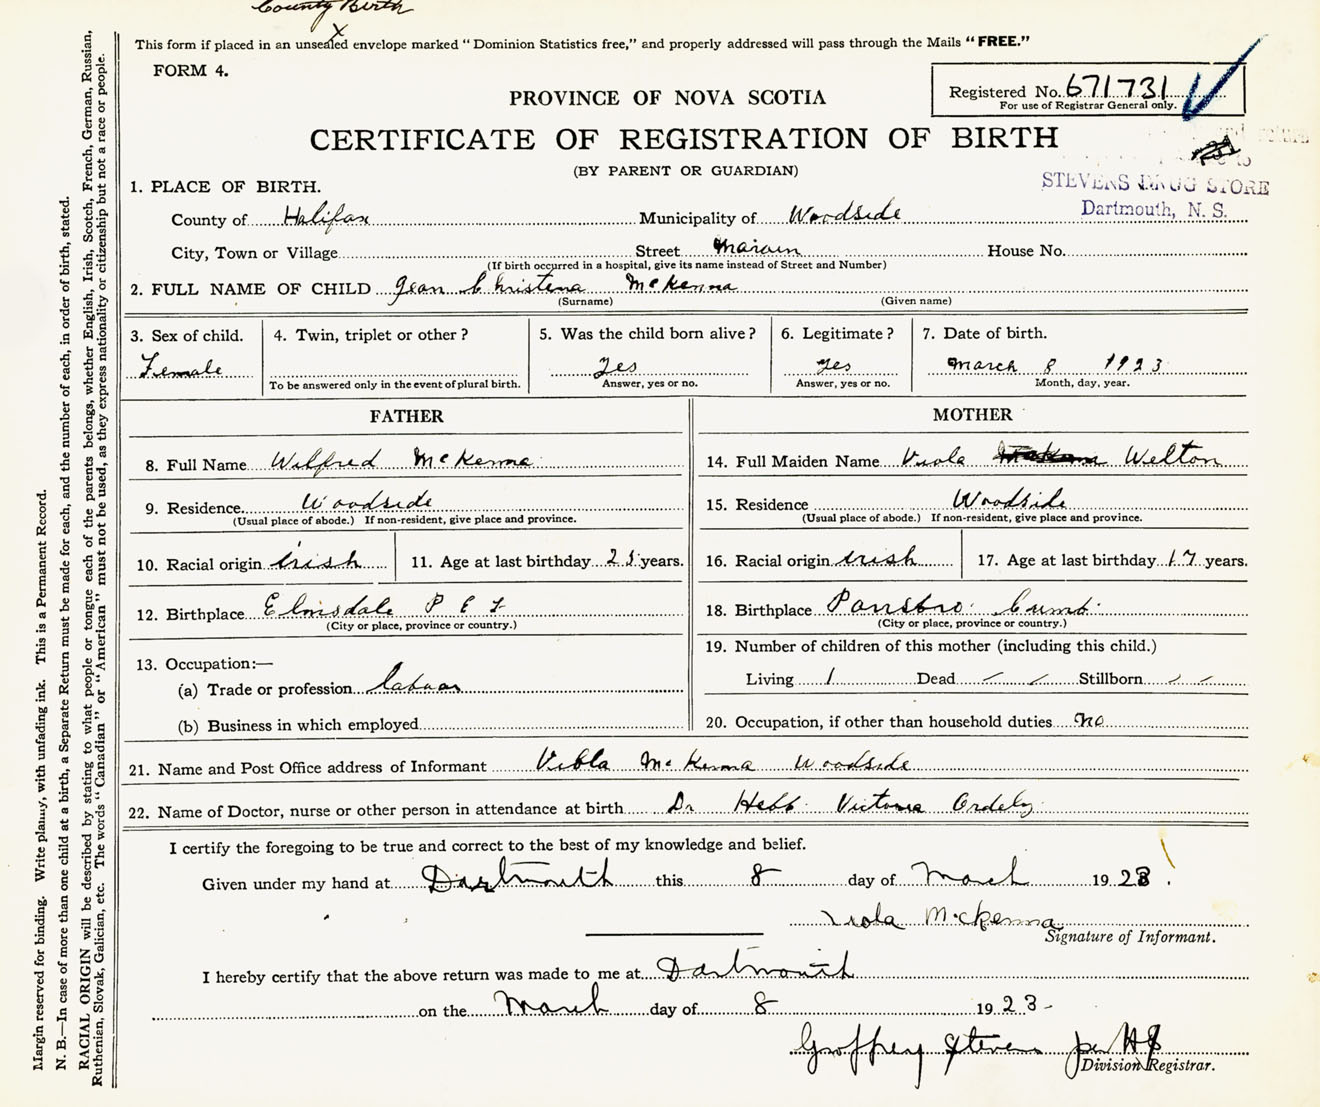 County Birth
This form if placed in an unsealed envelope marked "Dominion Statistics free," and properly addressed will pass through the Mails "FREE."
FORM 4.
Registered No. 671731
For use of Registrar General only.
PROVINCE OF NOVA SCOTIA
CERTIFICATE OF REGISTRATION OF BIRTH
(BY PARENT OR GUARDIAN)
return
to
STEVENS DRUG STORE
Dartmouth, N. S.
1. PLACE OF BIRTH.
County of Halifax Municipality of Woodside
City, Town or Village Street House No.
(If birth occurred in a hospital, give its name instead of Street and Number)
2. FULL NAME OF CHILD Jean Christena McKenna
(Surname) (Given name)
3. Sex of child. 4. Twin, triplet or other? 5. Was the child born alive? 6. Legitimate? 7. Date of birth.
Female Yes Yes March 8 1923
To be answered only in the event of plural birth. Answer, yes or no. Answer, yes or no. Month, day, year.
FATHER MOTHER
8. Full Name Wilfred McKenna 14. Full Maiden Name Viola Welton
9. Residence Woodside 15. Residence Woodside
(Usual place of abode.) If non-resident, give place and province. (Usual place of abode.) If non-resident, give place and province.
10. Racial origin Irish 11. Age at last birthday years. 16. Racial origin Irish 17. Age at last birthday 17 years.
12. Birthplace Elmsdale P E I 18. Birthplace Parrsbro. Cumb.
(City or place, province or country.) (City or place, province or country.)
13. Occupation:— 19. Number of children of this mother (including this child.)
(a) Trade or profession Labuar Living 1 Dead Stillborn
(b) Business in which employed 20. Occupation, if other than household duties no
21. Name and Post Office address of Informant Viola McKenna Woodside
22. Name of Doctor, nurse or other person in attendance at birth Dr Hebb Victoria Ordely
I certify the foregoing to be true and correct to the best of my knowledge and belief.
Given under my hand at Dartmouth this 8 day of March 1923.
Viola McKenna
Signature of Informant.
I hereby certify that the above return was made to me at Dartmouth
on the March day of 8 1923-
Geoffrey Stevens per HS
Division Registrar.
Margin reserved for binding. Write plainly, with unfading ink. This is a Permanent Record.
N. B.—In case of more than one child at a birth, a Separate Return must be made for each, and the number of each, in order of birth, stated.
RACIAL ORIGIN will be described by stating to what people or tongue each of the parents belongs, whether English, Irish, Scotch, French, German, Russian,
Ruthenian, Slovak, Galician, etc. The words "Canadian" or "American" must not be used, as they express nationality or citizenship but not a race or people.